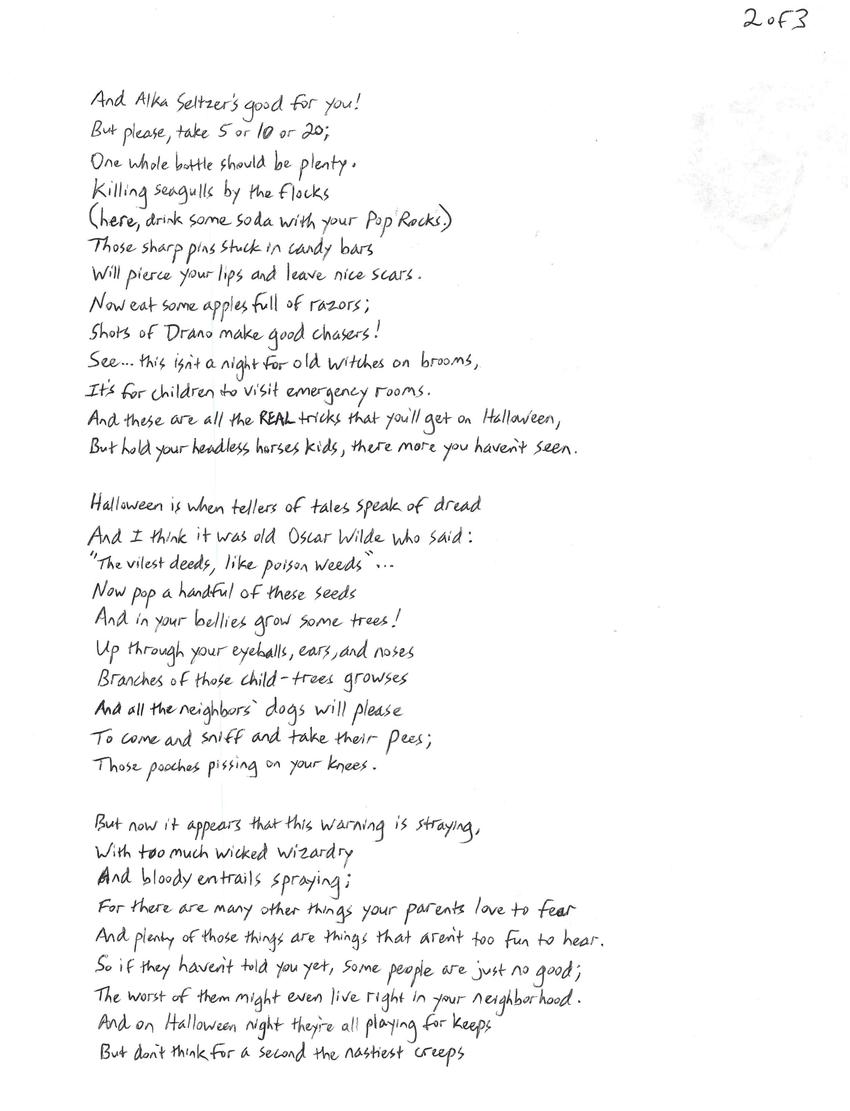 2 of 3
And Alka Seltzer's good for you!
But please, take 5 or 10 or 20;
One whole bottle should be plenty.
Killing seagulls by the flocks
(here, drink some soda with your Pop Rocks.)
Those sharp pins stuck in candy bars
Will pierce your lips and leave nice scars.
Now eat some apples full of razors;
Shots of Drano make good chasers!
See... this isn't a night for old witches on brooms,
It's for children to visit emergency rooms.
And these are all the REAL tricks that you'll get on Halloween,
But hold your headless horses kids, there more you haven't seen.
Halloween is when tellers of tales speak of dread
And I think it was old Oscar Wilde who said:
"The vilest deeds, like poison weeds"...
Now pop a handful of these seeds
And in your bellies grow some trees!
Up through your eyeballs, ears, and noses
Branches of those child-trees growses
And all the neighbors' dogs will please
To come and sniff and take their pees;
Those pooches pissing on your knees.
But now it appears that this warning is straying,
With too much wicked wizardry
And bloody entrails spraying;
For there are many other things your parents love to fear
And plenty of those things are things that aren't too fun to hear.
So if they haven't told you yet, some people are just no good;
The worst of them might even live right in your neighborhood.
And on Halloween night they're all playing for keeps
But don't think for a second the nastiest creeps